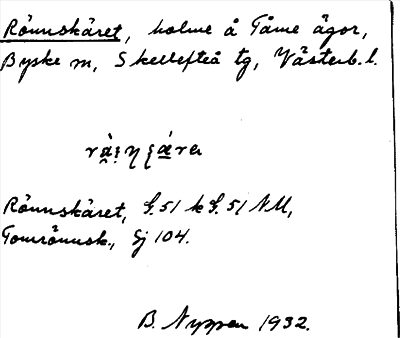 Rönnskäret, holme å Tåme ägor,
Byske m, Skellefteå tg, Västerb. l.
Rönnskäret, G.51 k G.51 NM,
Tomrönnsk., Gj 104.
B. Nyman 1932.